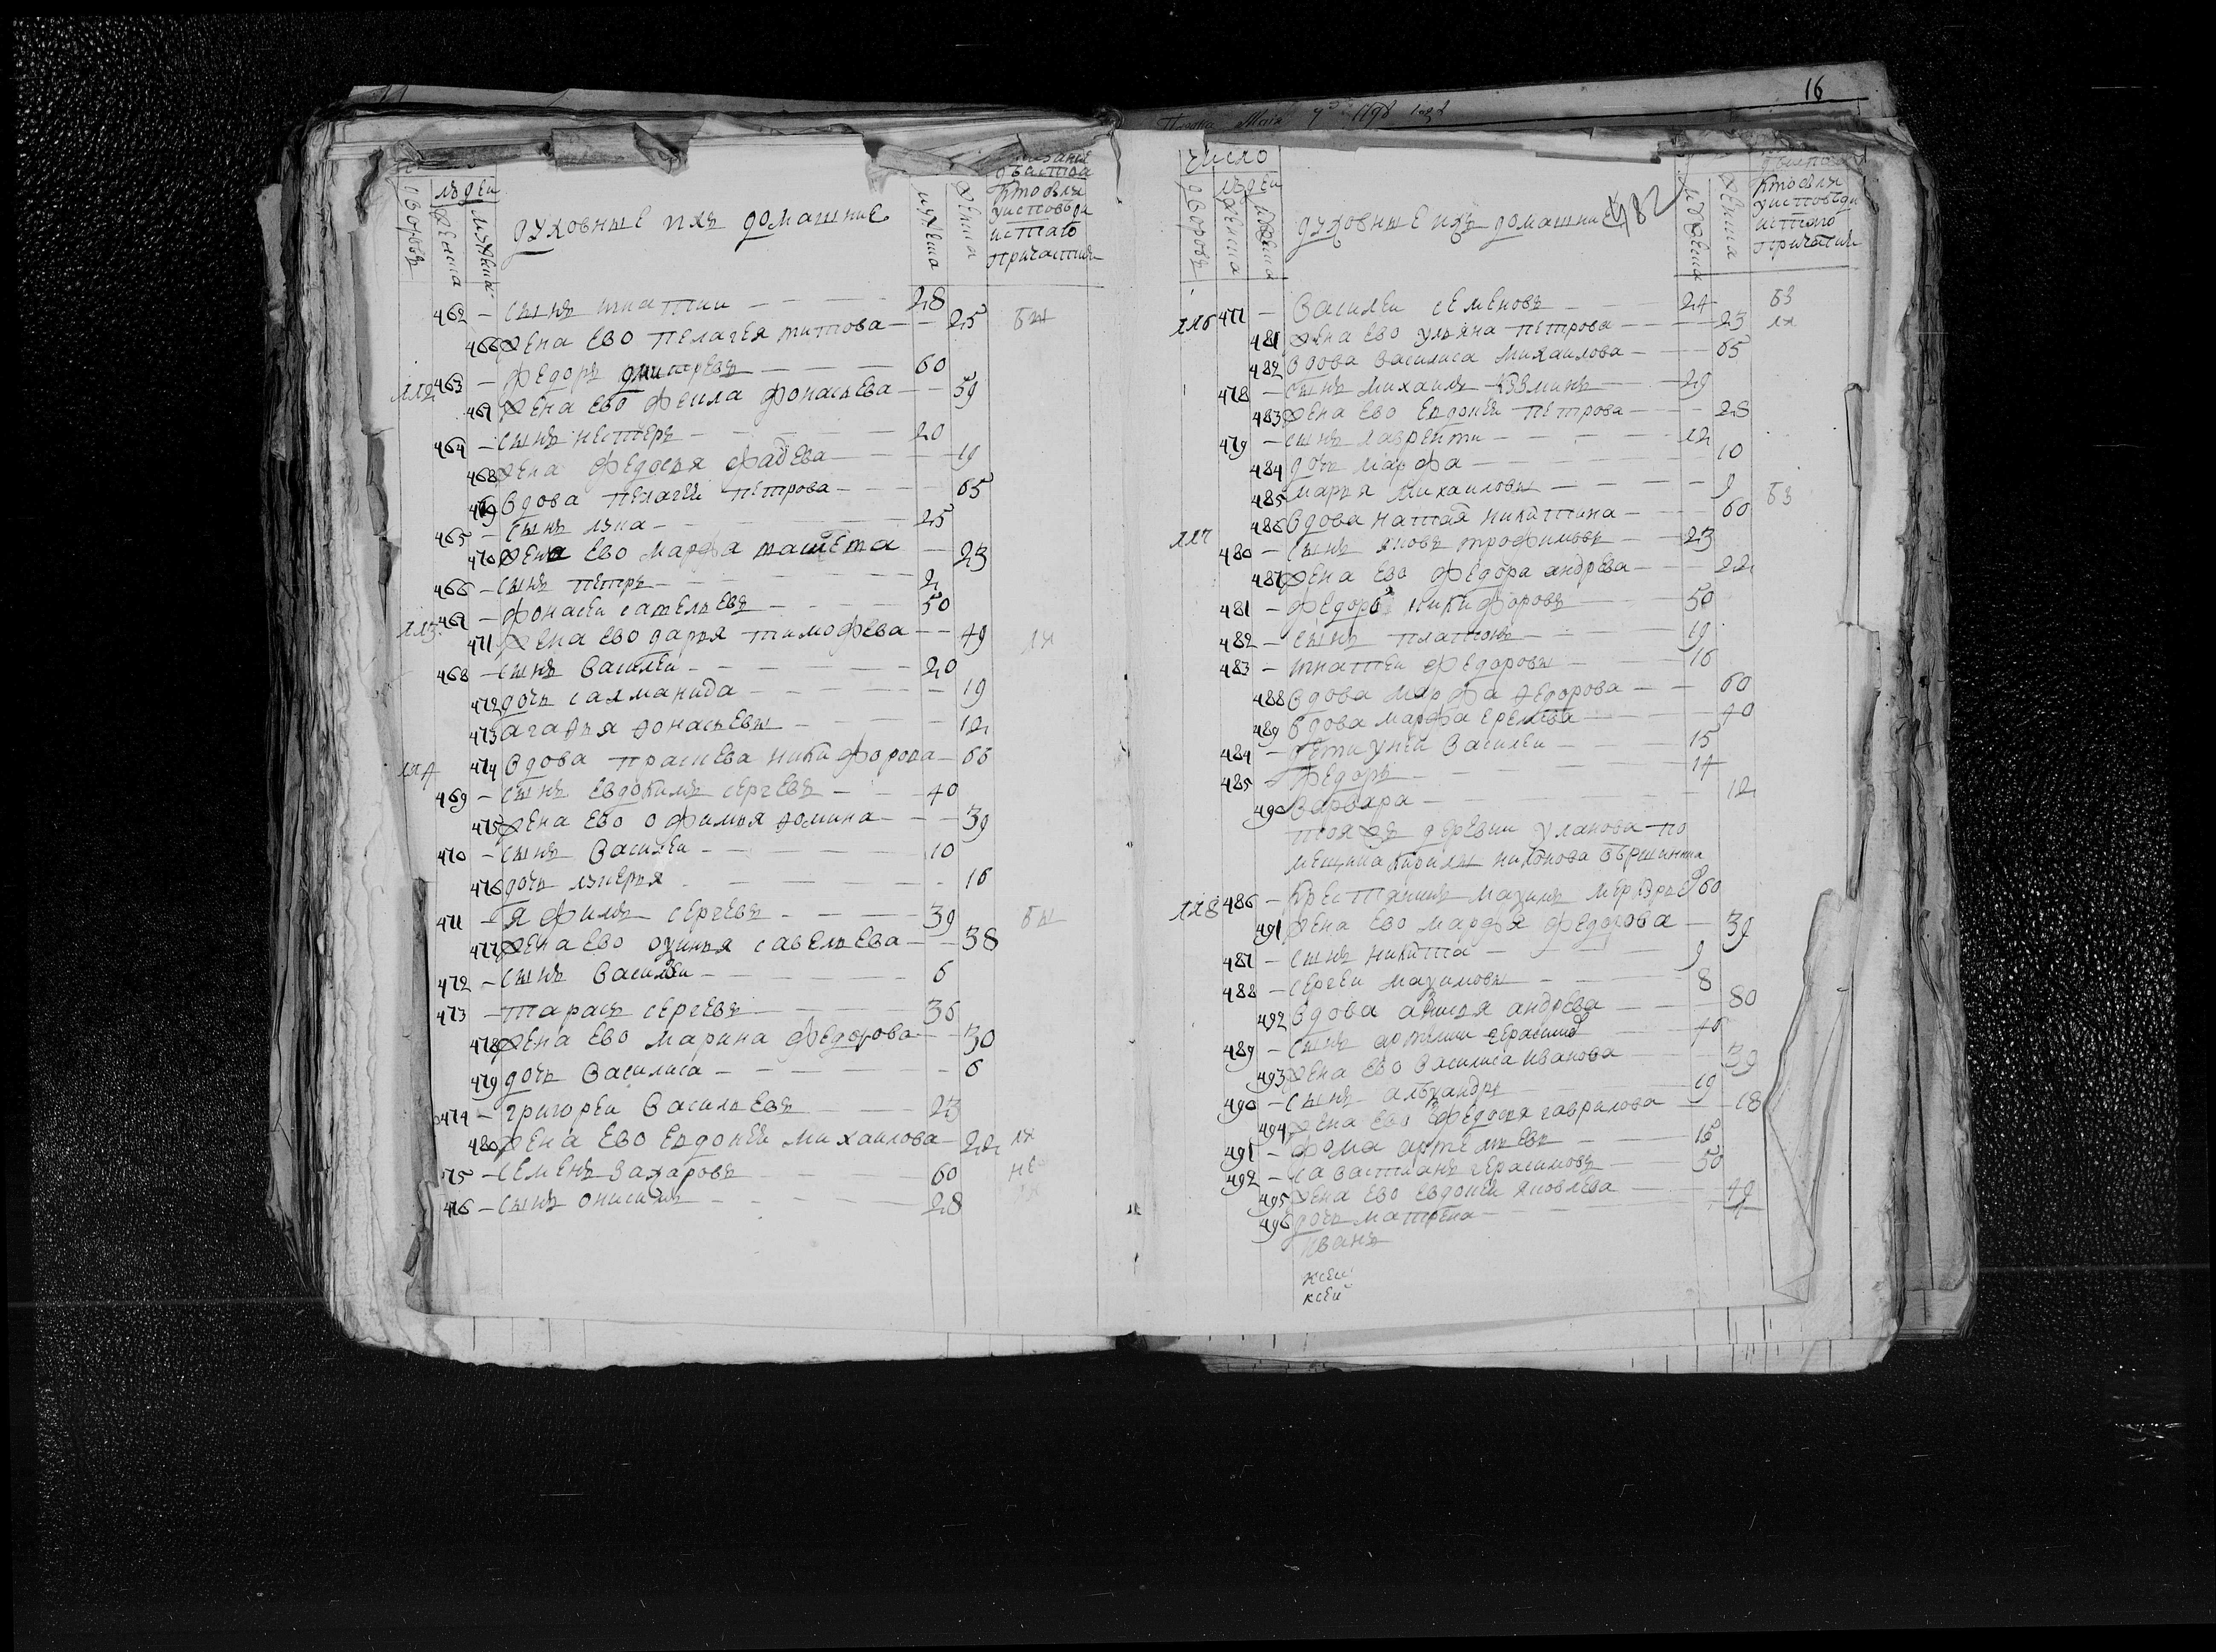 16
число
людеи
дворовъ
женска
мужска
духовные ихъ домашние
мужеска
женска
кто были
у исповеди
и стаго
причастия
462 – сынъ игнатии – 28
466 жена ево пелагея титова – 25
112 463 – федоръ дмитревъ – 60
467 жена ево фекла фонасьева – 59
464 – сынъ нестеръ – 20
468 жена федосья фадева – 19
469 вдова пелагея петрова – 65
465 – сынъ лука – 25
470 жена ево марфа – 23
466 – сынъ петръ – 2
113 467 – фонасеи савельевъ – 50
471 жена ево дарья тимофева – 49
468 – сынъ василеи – 20
472 дочь саламанида – 19
473 агафья фонасьевы – 12
114 474 вдова прасковя никифорова – 66
469 – сынъ евдокимъ сергевъ – 40
475 жена ево офимья фомина – 39
470 – сынъ василеи – 10
476 дочь лукерья – 16
471 – яфимъ сергевъ – 39
477 жена ево авелева савельева – 38
472 – сынъ василеи – 6
473 – тарасъ сергевъ – 36
478 жена ево марина федорова – 30
479 дочь василиса – 6
474 – григореи васильевъ – 23
480 жена ево евдокея михаилова – 22
475 – семенъ захаровъ – 60
476 – сынъ онисимъ – 28
число
людеи
дворовъ
женска
мужеска
духовные ихъ домашние
482
мужеска
женска
кто были
у исповеди
и стаго
причастия
116 477 – василеи семеновъ – 24
481 жена ево ульяна петрова – 23
482 вдова василиса михаилова – 65
478 – сынъ михаилъ кузминъ – 29
483 жена ево евдокея петрова – 28
479 – сынъ лаврентеи – 12
484 дочь марфа – 10
485 марья михаиловы – 9
486 вдова наталя никитина – 60
117 480 – сынъ яковъ трофимовъ – 23
487 жена ево федора андрева – 22
481 – федоръ никифоровъ – 50
482 – сынъ платонъ – 19
483 – игнатеи федоровы – 16
488 вдова марфа федорова – 60
489 вдова марфа еремева – 40
484 – дети унеи василеи – 15
485 – федоръ – 14
490 варвара – 12
тояжъ деревни уланова по
мещика кирилы никонова вършинина
118 486 – крестянинъ мазимъ 60
491 жена ево марфа федорова – 39
487 – сынъ никита – 9
488 – сергеи мазимовы – 8
492 вдова анисья андрева – 80
489 – сынъ артемеи герасимовъ – 46
493 жена ево василиса иванова – 39
490 – сынъ алезандръ – 19
494 жена ево федосья гаврилова – 18
491 – фома артемьевъ – 16
492 – савастьянъ герасимовъ – 50
495 жена ево евдокея яковлева – 49
496 дочь матрена – 4
иванъ
ксеи
ксеи